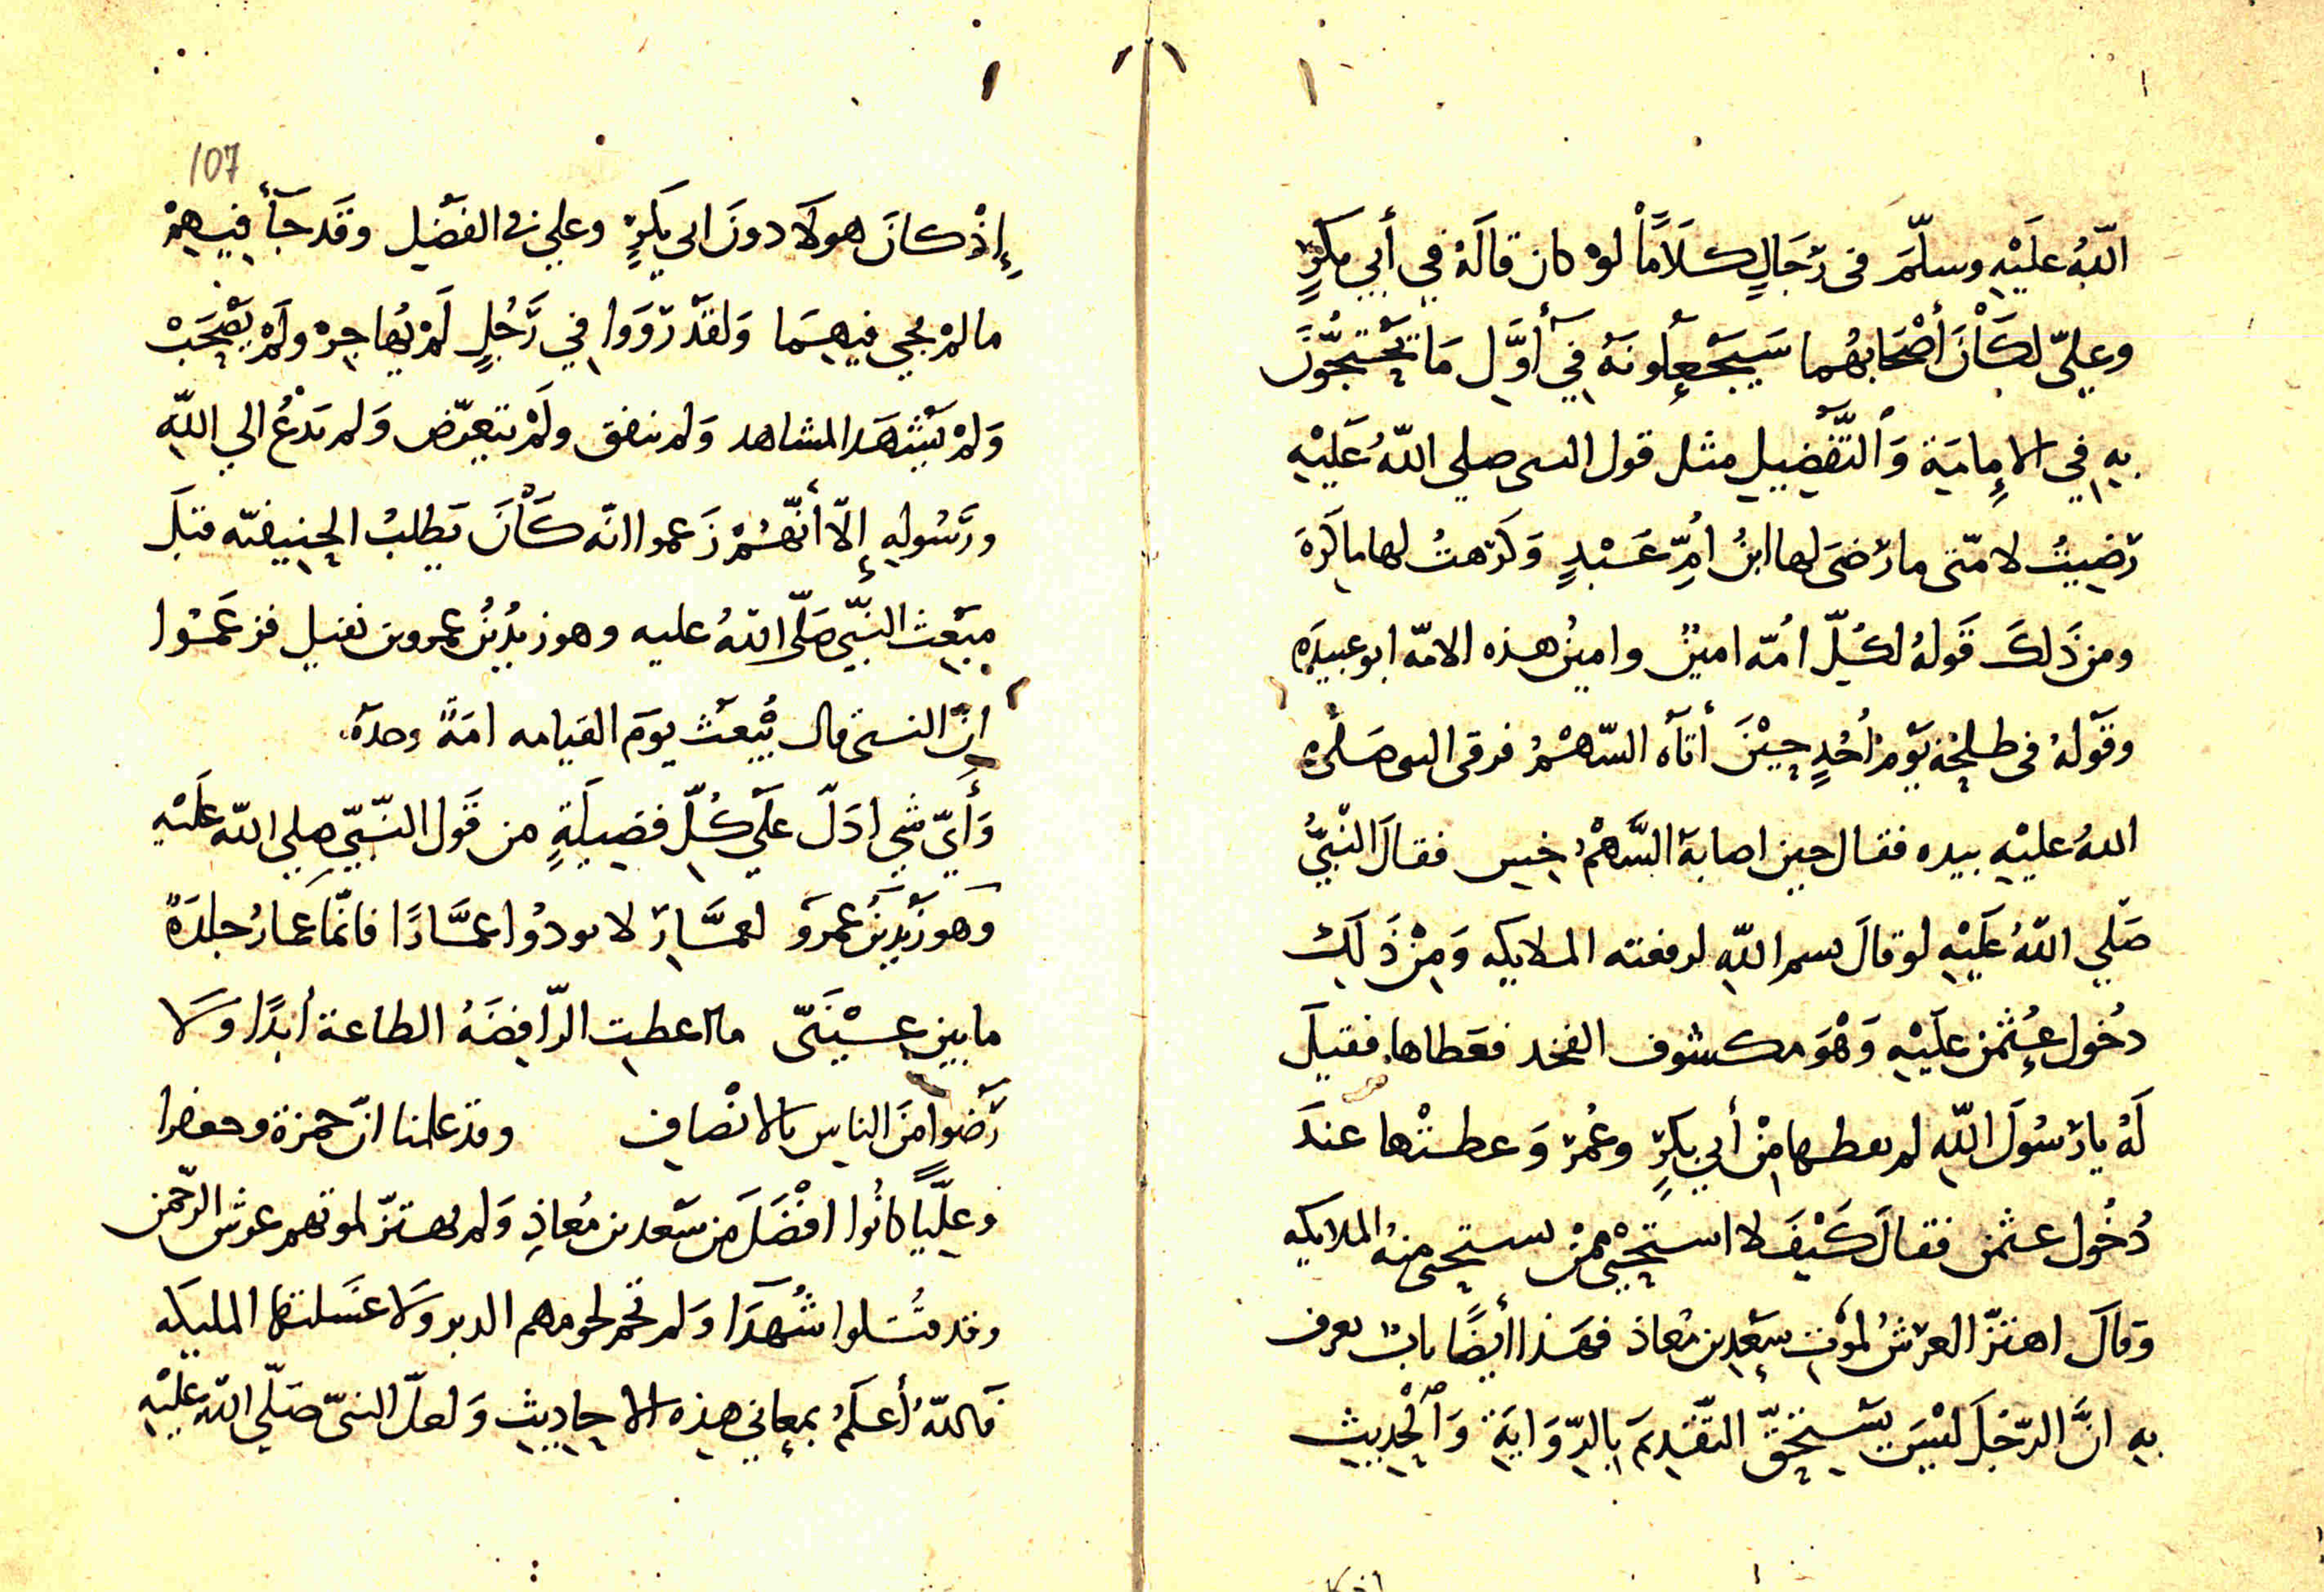 اللّهُ عَلَيْهِ وسلّمَ فى رَجَالٍ كَلَامًا لوْ كان قالَهُ في أبي بكرٍ
وعليّ لكَانَ أصْحَابهُما سَيَجْعلُونَهُ في أوَّلِ مَا يَحْتجُّونَ
بهِ في الامِامَية وَالتَّفْضِيلِ مثل قول النبى صلي اللّهُ عَلَيْهِ
رَضِيتُ لامّتى ما رَضىَ لها ابنُ امِّ عَبْدٍ وَكَرهتُ لها ما كَرَهَ
ومن ذَلكَ قَولهُ لكُلّ امُّه امينٌ وامينُ هذه الامّه ابو عبيدَه
وقَولهُ فى طلحَة يَومَ أُحُدٍ حِيْنَ أتَاه السّهْمُ فوقى النبى صَلى
اللهُ عليْهِ بيده فقال حين اصابهَ السَّهْمُ حَسِ فقالَ النّبيُّ
صَلّي اللّهُ عَلَيْهِ لو قالَ بسم اللّهِ لرفعته الملايكه وَمِنْ ذَلكَ
دخُول عُثمْن علَيْهِ وَهْوَ مكشوف الفخد فغَطاها فقيلَ
لَهُ يا رَسُولَ اللّهِ لم تعطها مِنْ أبي بكرٍ وعُمرَ وَعطيتْها عندَ
دُخُول عثمن فقالَ كَيْفَ لا استحْيى ممنْ تستحى منهُ الملايكه
وَقالَ اهتزّ العرَشُ لموْتِ سَعْدِ بن مُعاذ فهَذا أيضًا بابٌ يعرف
بهِ انَّ الرّجُلَ ليْسَ يَسْتحِقّ التّقْدِيمَ بالرِّوَايَةِ وَالْحَدِيثِ
107
إِذْ كانَ هولَا دونَ ابى بكرٍ وعلي فى الفضْلِ وقَد جَآءَ فيهِمْ
ما لمْ يجي فيهِمَا وَلقدْ رَوَوا في رَجُلٍ لَمْ يُهاجِرْ ولَمْ يَصْحَبْ
وَلمْ يَشْهَد المشاهد وَلم ينفق ولَمْ يتعرّض وَلم يَدْعُ الي اللّهِ
ورَسُولهِ إلّا أنّهُمْ زَعموا انّه كَانَ يَطلبُ الحنيفيّه قبلَ
مبْعثِ النبّيّ صَلّى اللّهُ عليه وهو زيدُ بنُ عمرو بن نفيل فزعَمُوا
انّ النبىّ قال يُبْعَثُ يَومَ القيامه امَةً وحدَهُ
وَأيّ شي ادَلّ عَلَي كُلّ فَضِيلَةٍ من قَول النّبيّ صلي اللّه عَلَيْهِ
وَهو زيدُ بنُ عمرو لعمَّارَ لا تودُوا عمَّارًا فانّما عمارُ جلدَةُ
ما بين عيْنَىّ ما اعطيت الرّافِضَهُ الطاعة أبدًا وَلَا
رَضوا منَ الناس بالانْصافِ وقد علمنا انّ حمزة وجعفرا
وعليًّا كانُوا افْضَلَ مِن سَعد بن مُعاذِ وَلم يهتزّ لموتهم عرش الرّحمن
وقد قُتلوا شُهَدَا وَلم تحم لحومهم الدبر وَلا غسَلتها المليكه
فاللّهُ أعلَمُ بمعاني هذه الاحاديثِ وَلعلّ النبىّ صَلّي اللّهُ عَلَيْهِ